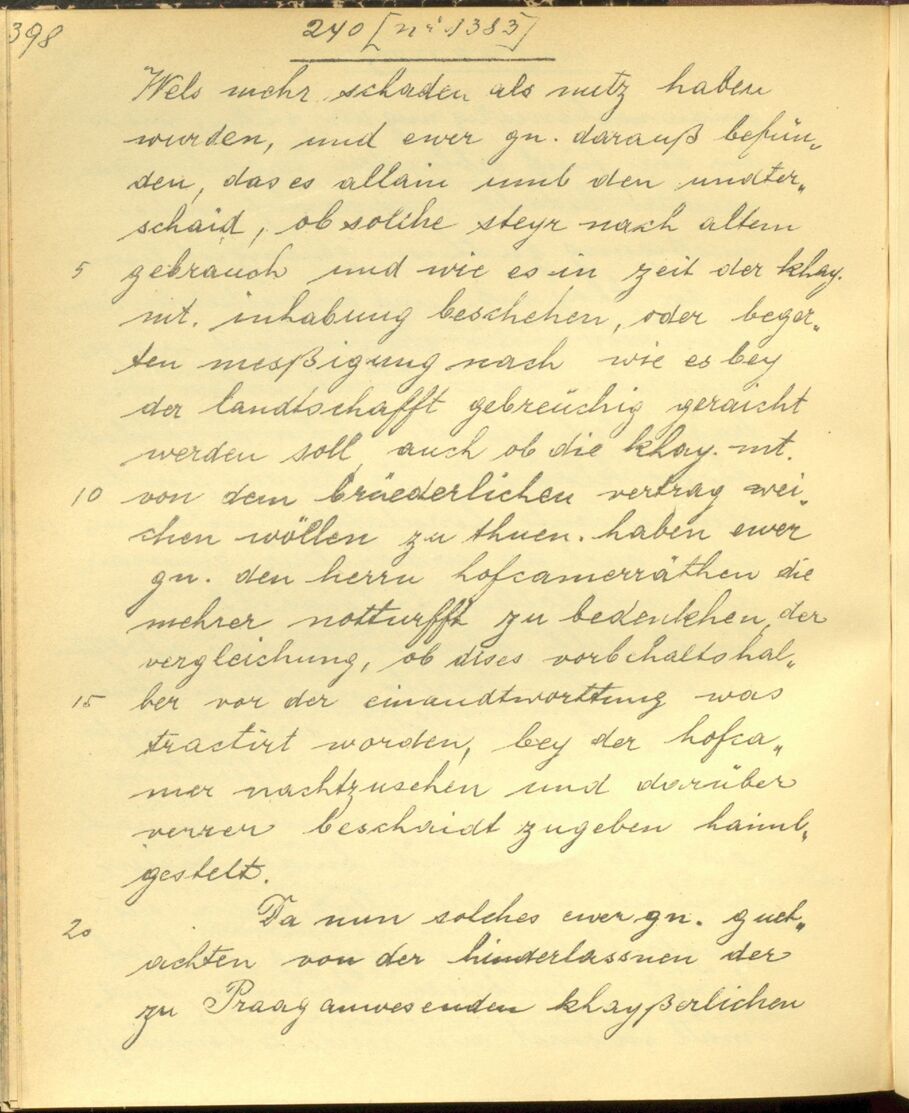 398
240 [nº 1383]
Wels mehr schaden als nutz haben
wurden, und ewer gn. darauß befün„
den, das es allain umb den undter„
schaid, ob solche steyr nach altem
5 gebrauch und wie es in zeit der khay.
mt. inhabung beschehen, oder beger„
ten mesßigung nach wie es bey
der landtschafft gebreüchig geraicht
werden soll, auch ob die khay. mt.
10 von dem brüederlichen vertrag wei„
chen wöllen zu thuen. haben ewer
gn. den herrn hofcamerräthen die
mehrer notturfft zu bedenkhen, der
vergleichung, ob dises vorbehaltshal„
15 ber vor der einandtworttung was
tractirt worden, bey der hofca„
mer nachtzusehen und darüber
verrer beschaidt zugeben haimb„
gestelt.
20 Da nun solches ewer gn. guet„
achten von der hinderlassnen der
zu Praag anwesenden khayßerlichen